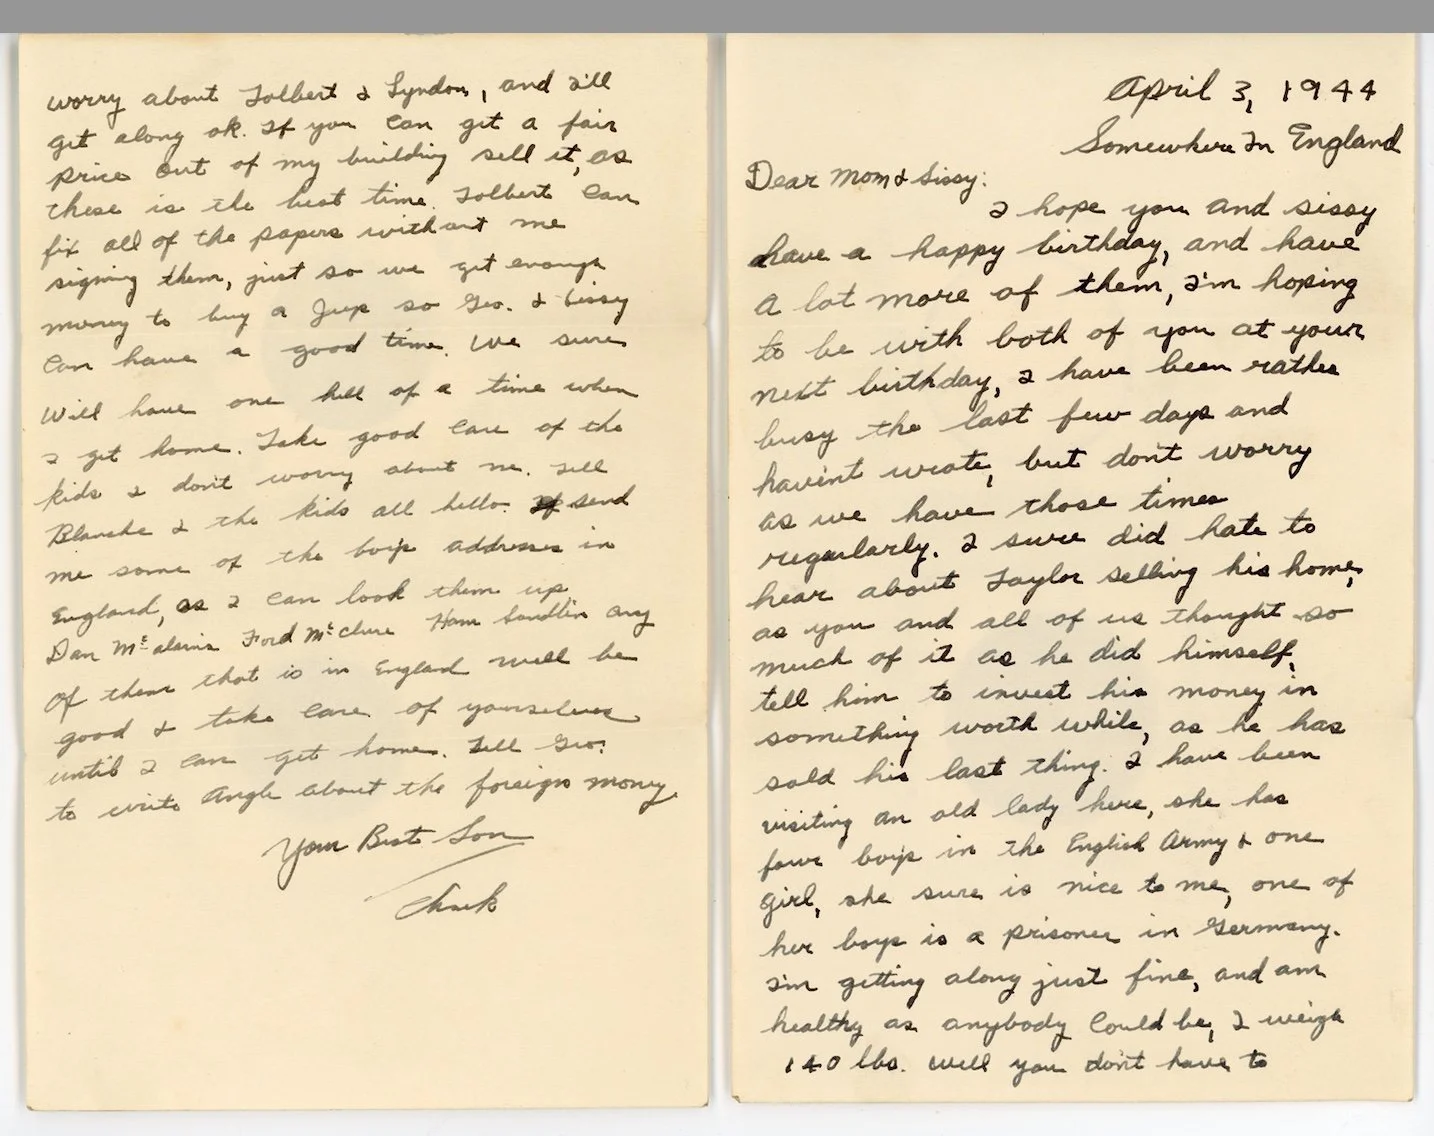 April 3, 1944
Somewhere In England
Dear Mom & Sissy:
I hope you and sissy
have a happy birthday, and have
a lot more of them, I'm hoping
to be with both of you at your
next birthday, I have been rather
busy the last few days and
havint wrote, but don't worry
as we have those times
regularly. I sure did hate to
hear about Taylor selling his home,
as you and all of us thought so
much of it as he did himself,
tell him to invest his money in
something worth while, as he has
sold his last thing. I have been
visiting an old lady here, she has
four boys in the English Army & one
girl, she sure is nice to me, one of
her boys is a prisoner in Germany.
I'm getting along just fine, and am
healthy as anybody could be, I weigh
140 lbs. Well you don't have to
worry about Tolbert & Lyndon, and I'll
get along ok. If you can get a fair
price out of my building sell it, as
these is the best time. Tolbert can
fix all of the papers without me
signing them, just so we get enough
money to buy a Jeep so Geo. & Sissy
can have a good time. We sure
will have one hell of a time when
I get home. Take good care of the
kids & don't worry about me. Tell
Blanche & the kids all hello. send
me some of the boys addresses in
England, as I can look them up
Dan Ford McClure Ham Sandlin any
of them that is in England will be
good & take care of yourselves
until I can get home. Tell Geo.
to write Angle about the foreign money.
Your Best Son
Chuck